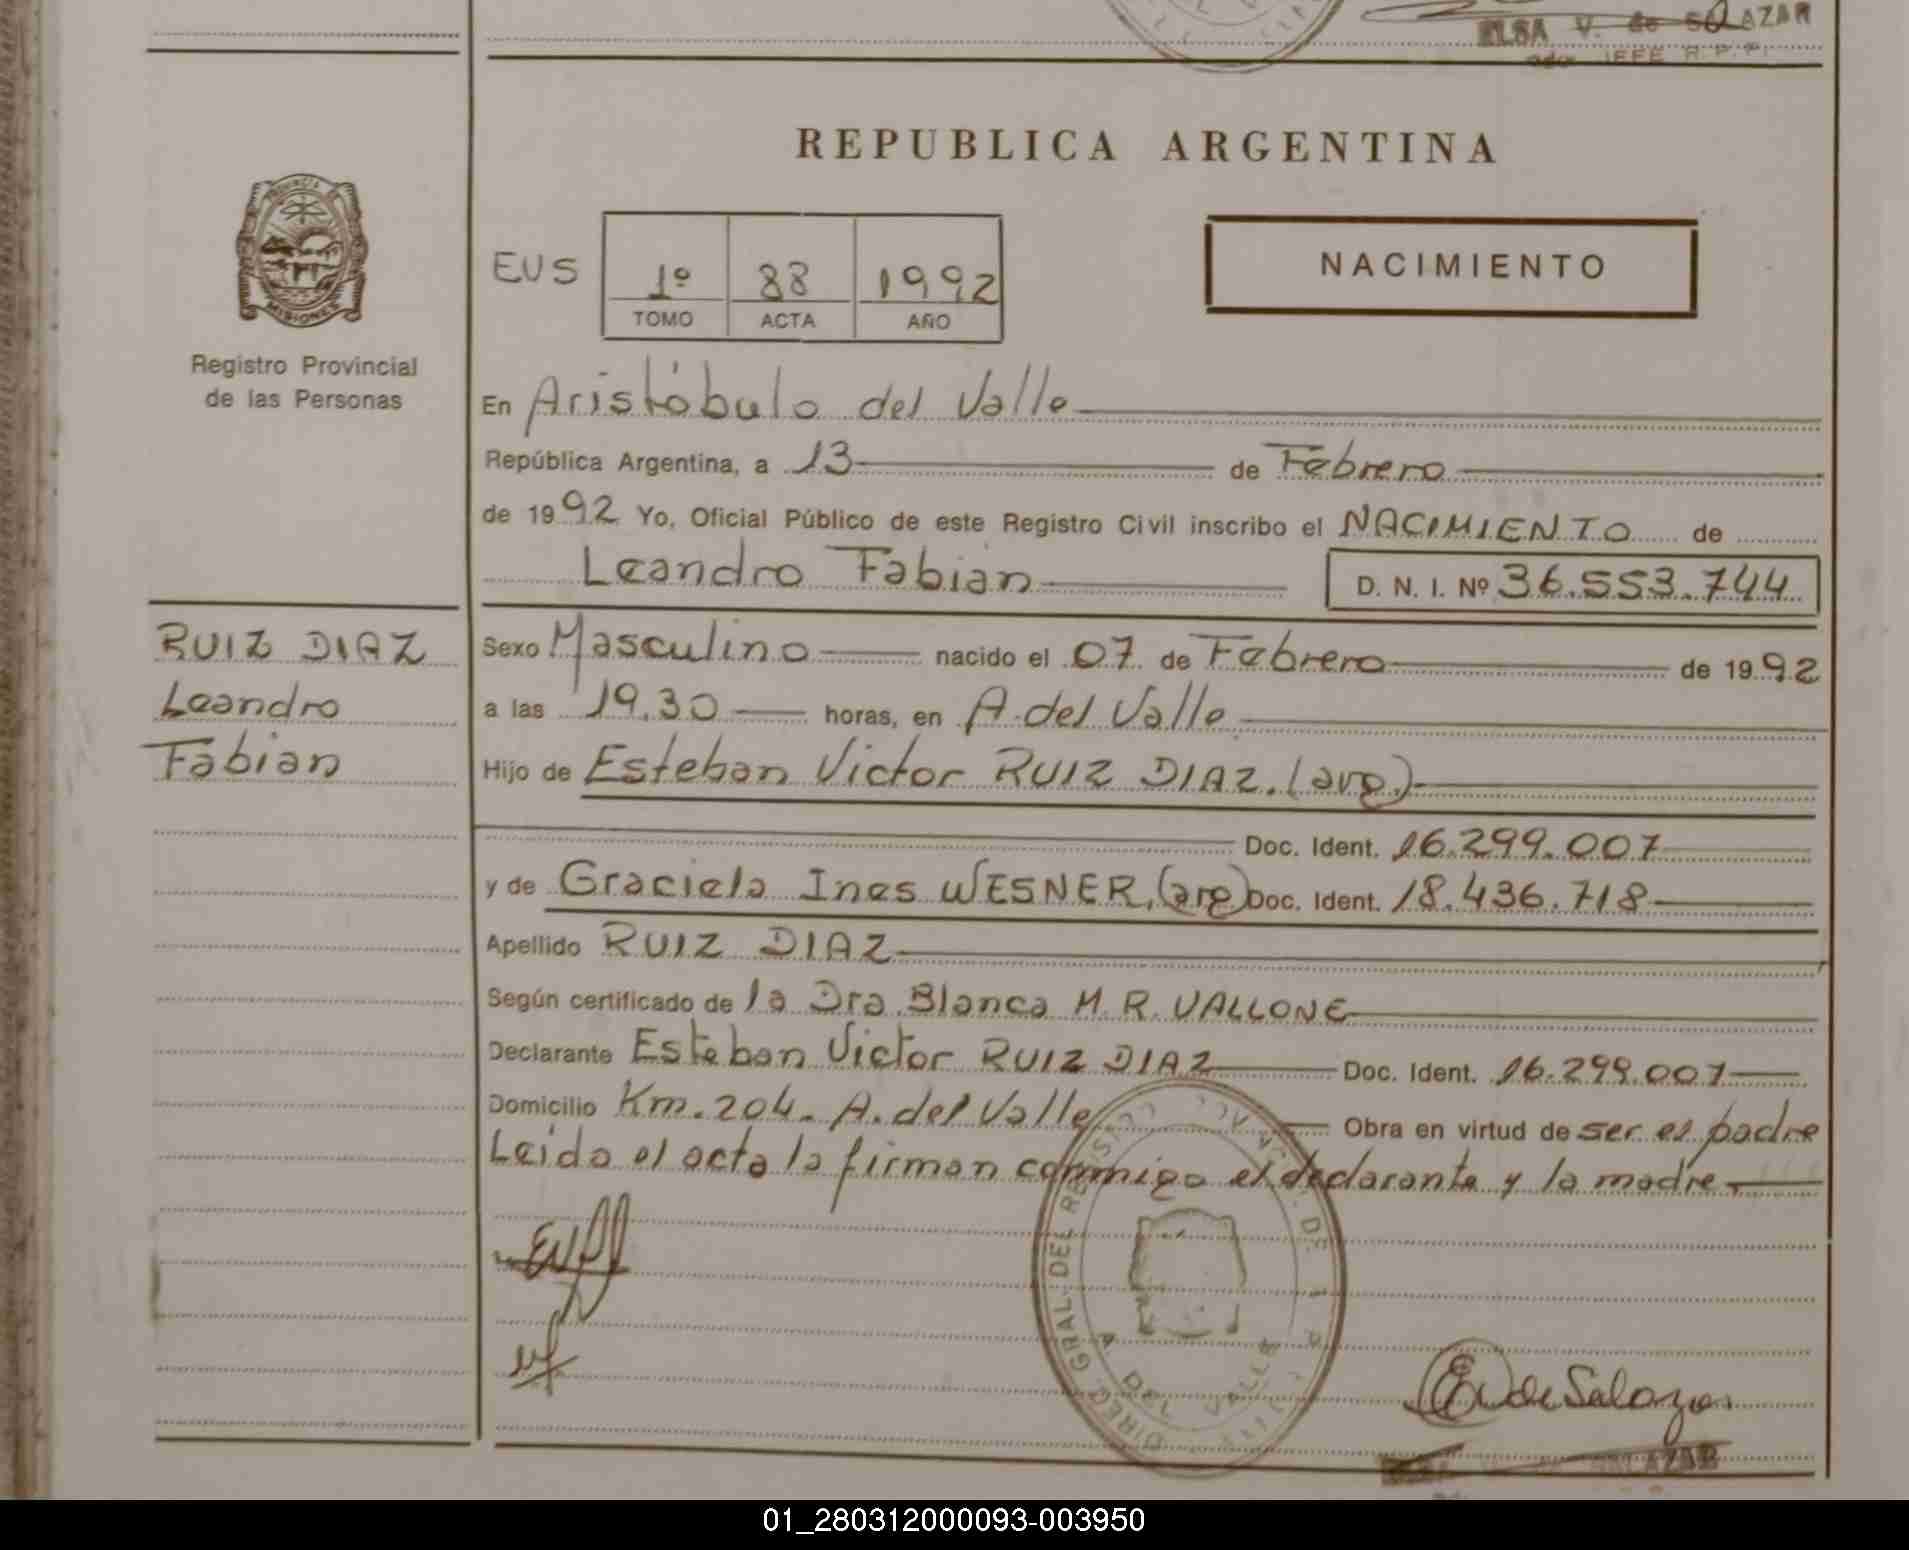 ELSA V. de SALAZAR
JEFE R. P. P.
REPUBLICA ARGENTINA
PROVINCIA DE
MISIONES
Registro Provincial
de las Personas
EUS
1º 88 1992
TOMO ACTA AÑO
NACIMIENTO
En Aristóbulo del Valle
República Argentina, a 13 de Febrero
de 1992 Yo, Oficial Público de este Registro Civil inscribo el NACIMIENTO de
Leandro Fabian D. N. I. Nº 36.553.744
RUIZ DIAZ
Leandro
Fabian
Sexo Masculino nacido el 07 de Febrero de 1992
a las 19.30 horas, en A. del Valle
Hijo de Esteban Victor RUIZ DIAZ. (arg.)
Doc. Ident. 16.299.007
y de Graciela Ines WESNER. (arg) Doc. Ident. 18.436.718
Apellido RUIZ DIAZ
Según certificado de la Dra. Blanca M. R. VALLONE
Declarante Esteban Victor RUIZ DIAZ Doc. Ident. 16.299.007
Domicilio Km. 204. A. del Valle Obra en virtud de ser el padre
Leida el acta la firman conmigo el declarante y la madre.
DIREC. GRAL. DEL REG.
A. DEL VALLE
E V de Salazar
SALAZAR
01_280312000093-003950